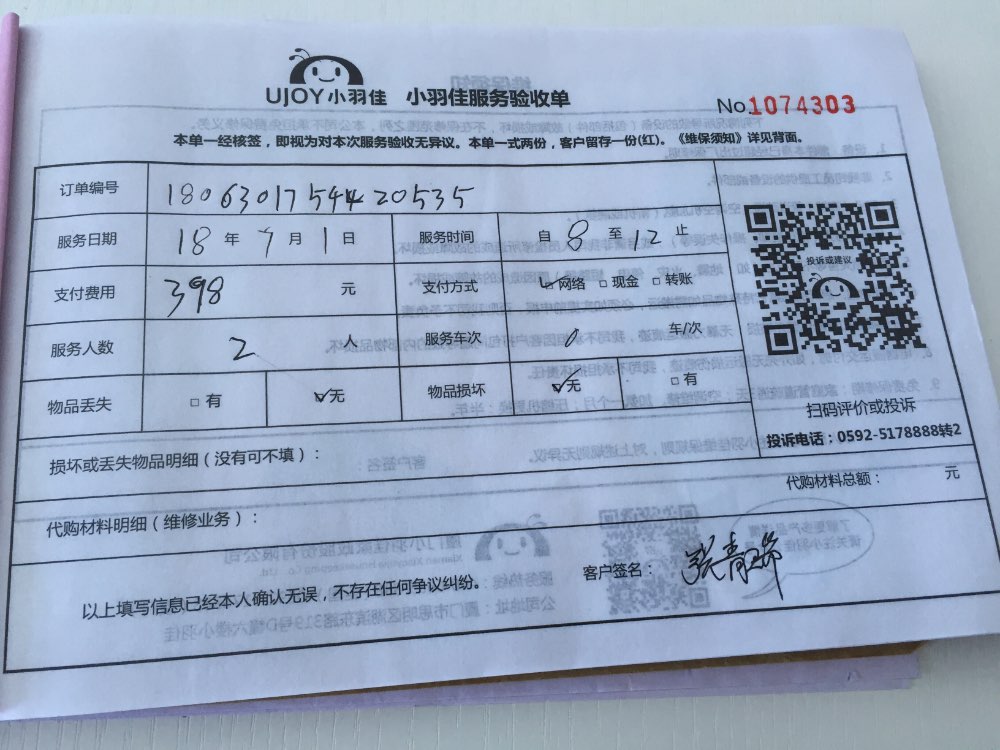 UJOY小羽佳 小羽佳服务验收单
No 1074303
本单一经核签，即视为对本次服务验收无异议。本单一式两份，客户留存一份(红)。《维保须知》详见背面。
订单编号 1806301754420535
服务日期 18年7月1日 服务时间 自8至12止
支付费用 398 元 支付方式 网络 现金 转账
服务人数 2 人 服务车次 0 车/次
物品丢失 有 无 物品损坏 无 有
投诉或建议
扫码评价或投诉
投诉电话：0592-5178888转2
损坏或丢失物品明细（没有可不填）：
代购材料总额： 元
代购材料明细（维修业务）：
客户签名：
以上填写信息已经本人确认无误，不存在任何争议纠纷。